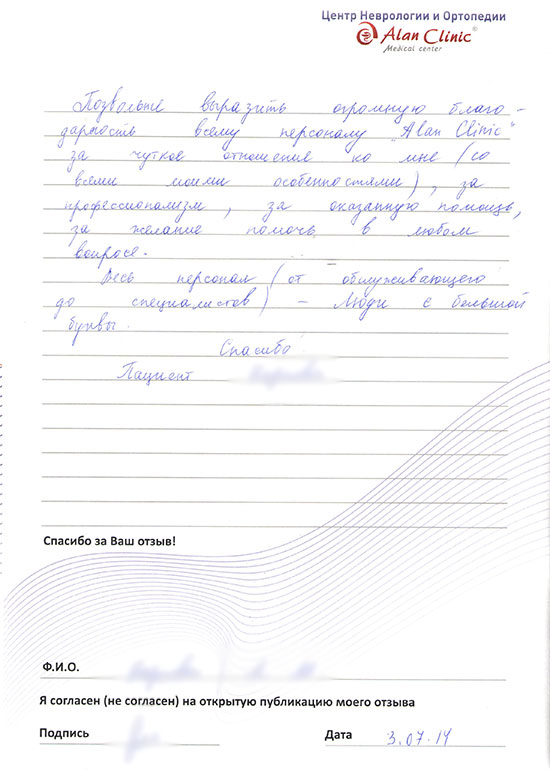 Центр Неврологии и Ортопедии
Alan Clinic®
Medical center
Позвольте выразить огромную благо-
дарность всему персоналу "Alan Clinic"
за чуткое отношение ко мне (со
всеми моими особенностями), за
профессионализм, за оказанную помощь,
за желание помочь в любом
вопросе.
Весь персонал (от обслуживающего
до специалистов) – Люди с большой
буквы.
Спасибо
Пациент
Спасибо за Ваш отзыв!
Ф.И.О.
Я согласен (не согласен) на открытую публикацию моего отзыва
Подпись Дата 3.07.14